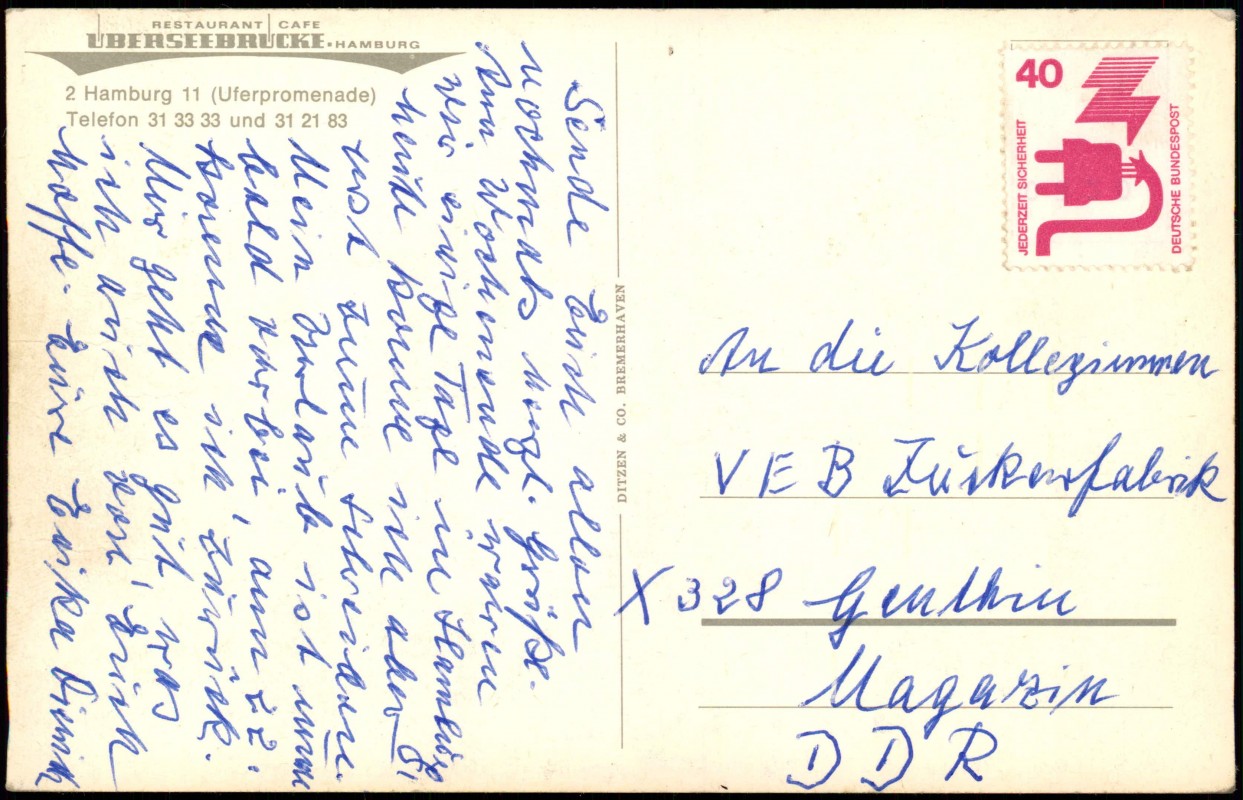 RESTAURANT CAFE
ÜBERSEEBRÜCKE • HAMBURG
2 Hamburg 11 (Uferpromenade)
Telefon 31 33 33 und 31 21 83
Sende Euch allen
nochmals herzl. Grüße.
Am Wochenende waren
wir einige Tage in Hamburg
heute komme ich aber
erst zum schreiben.
Mein Urlaub ist nun
bald vorbei, am 22.
komme ich zurück.
Mir geht es gut was
ich auch von Euch
hoffe. Eure Erika
DITZEN & CO. BREMERHAVEN
40
JEDERZEIT SICHERHEIT
DEUTSCHE BUNDESPOST
An die Kolleginnen
VEB Zuckerfabrik
X 328 Genthin
Magazin
DDR